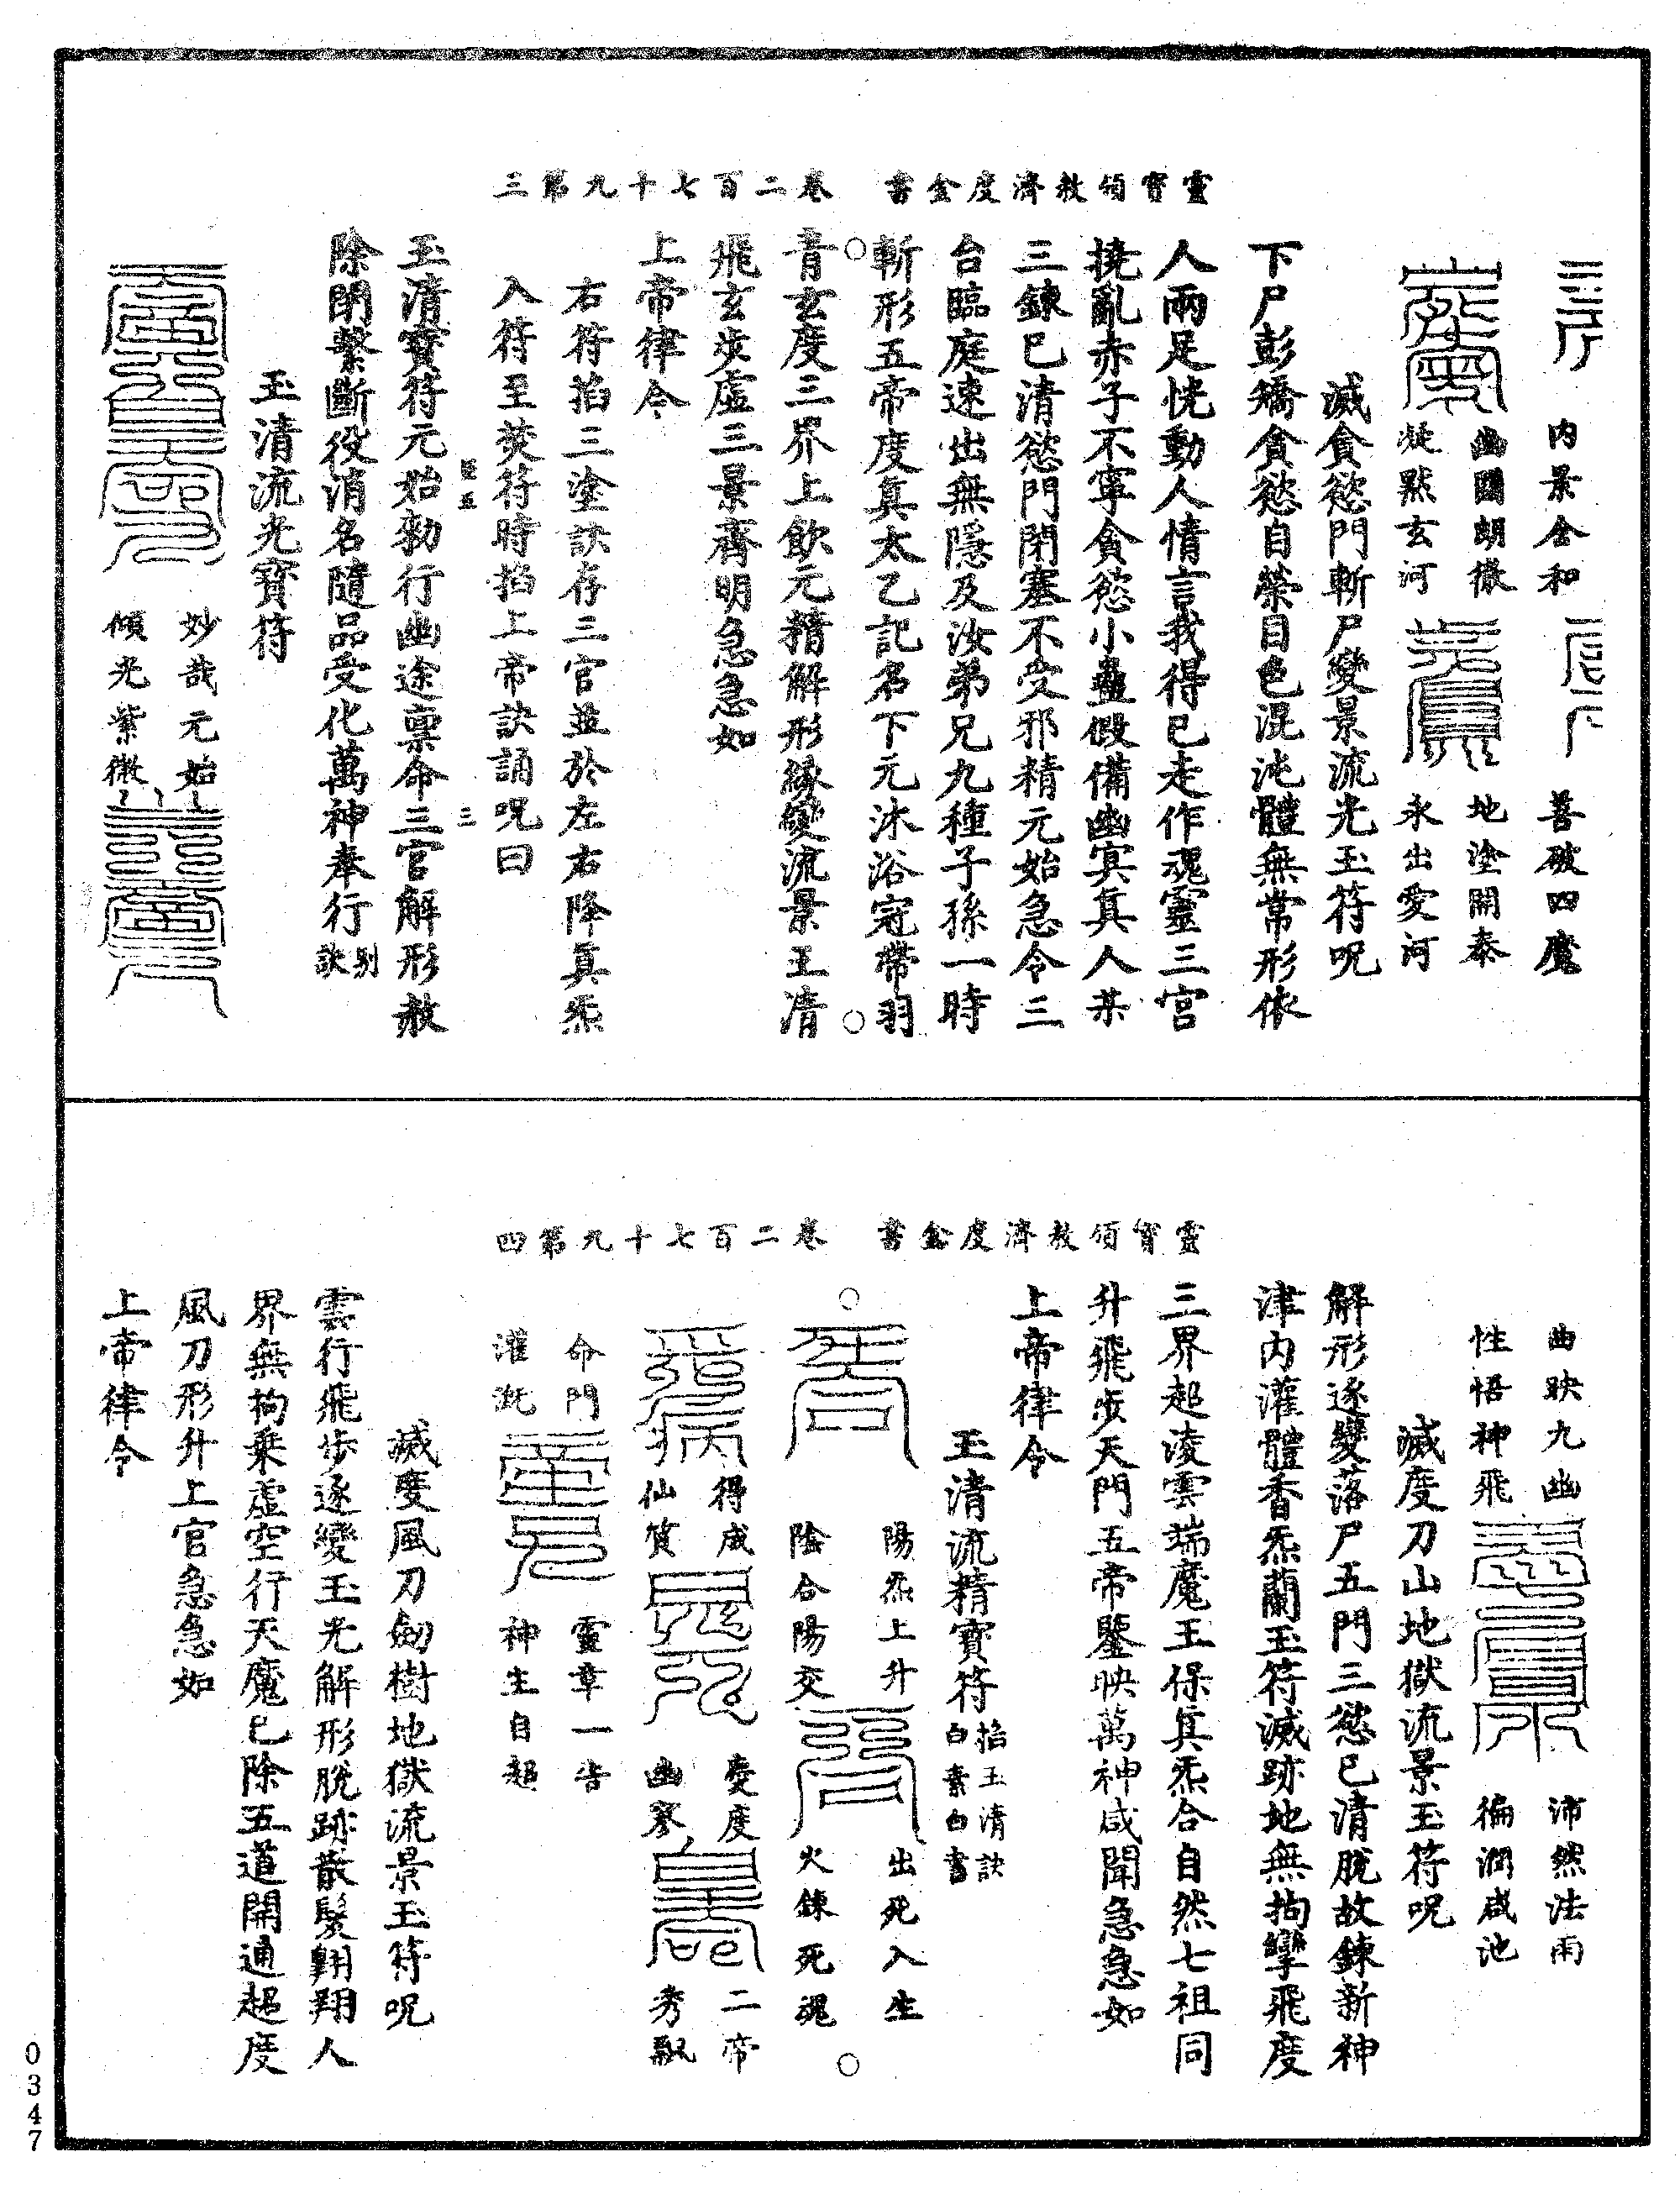 靈寶領教濟度金書　卷二百七十九第三
內景含和
善破四魔
幽關朗徹
地塗開泰
凝默玄河
永出愛河
滅貪慾門斬尸變景流光玉符呪
下尸彭矯貪慾自榮目色混沌體無常形依
人兩足恍動人情言我得已走作魂靈三宮
撓亂赤子不寧貪慾小蠱假備幽冥真人某
三鍊已清慾門閉塞不受邪精元始急令三
台臨庭速出無隱及汝弟兄九種子孫一時
斬形五帝度真太乙記名下元沐浴冠帶羽
青玄度三界上飲元精解形緣變流景王清
飛玄步虛三景齊明急急如
上帝律令
右符掐三塗訣存三官並於左右降真炁
入符至焚符時掐上帝訣誦呪曰
三
玉清寶符元始勑行幽途稟命三官解形赦
除閉繫斷役消名隨品受化萬神奉行別訣
玉清流光寶符
妙哉元始
傾光紫微
靈寶領教濟度金書　卷二百七十九第四
曲映九幽
沛然法雨
性悟神飛
徧潤咸池
滅度刀山地獄流景玉符呪
解形逐變落尸五門三慾已清脫故鍊新神
津內灌體香炁蘭玉符滅跡地無拘攣飛度
三界超淩雲端魔王保真炁合自然七祖同
升飛步天門五帝鑒映萬神咸聞急急如
上帝律令
玉清流精寶符掐玉清訣白素白書
陽炁上升
出死入生
陰合陽交
火鍊死魂
得成
慶度
二帝
仙質
幽寥
秀飄
命門
靈章一告
灌溉
神生自超
滅度風刀劒樹地獄流景玉符呪
雲行飛步逐變玉光解形脫跡散髮翱翔人
界無拘乘虛空行天魔已除五道開通超度
風刀形升上官急急如
上帝律令
0347